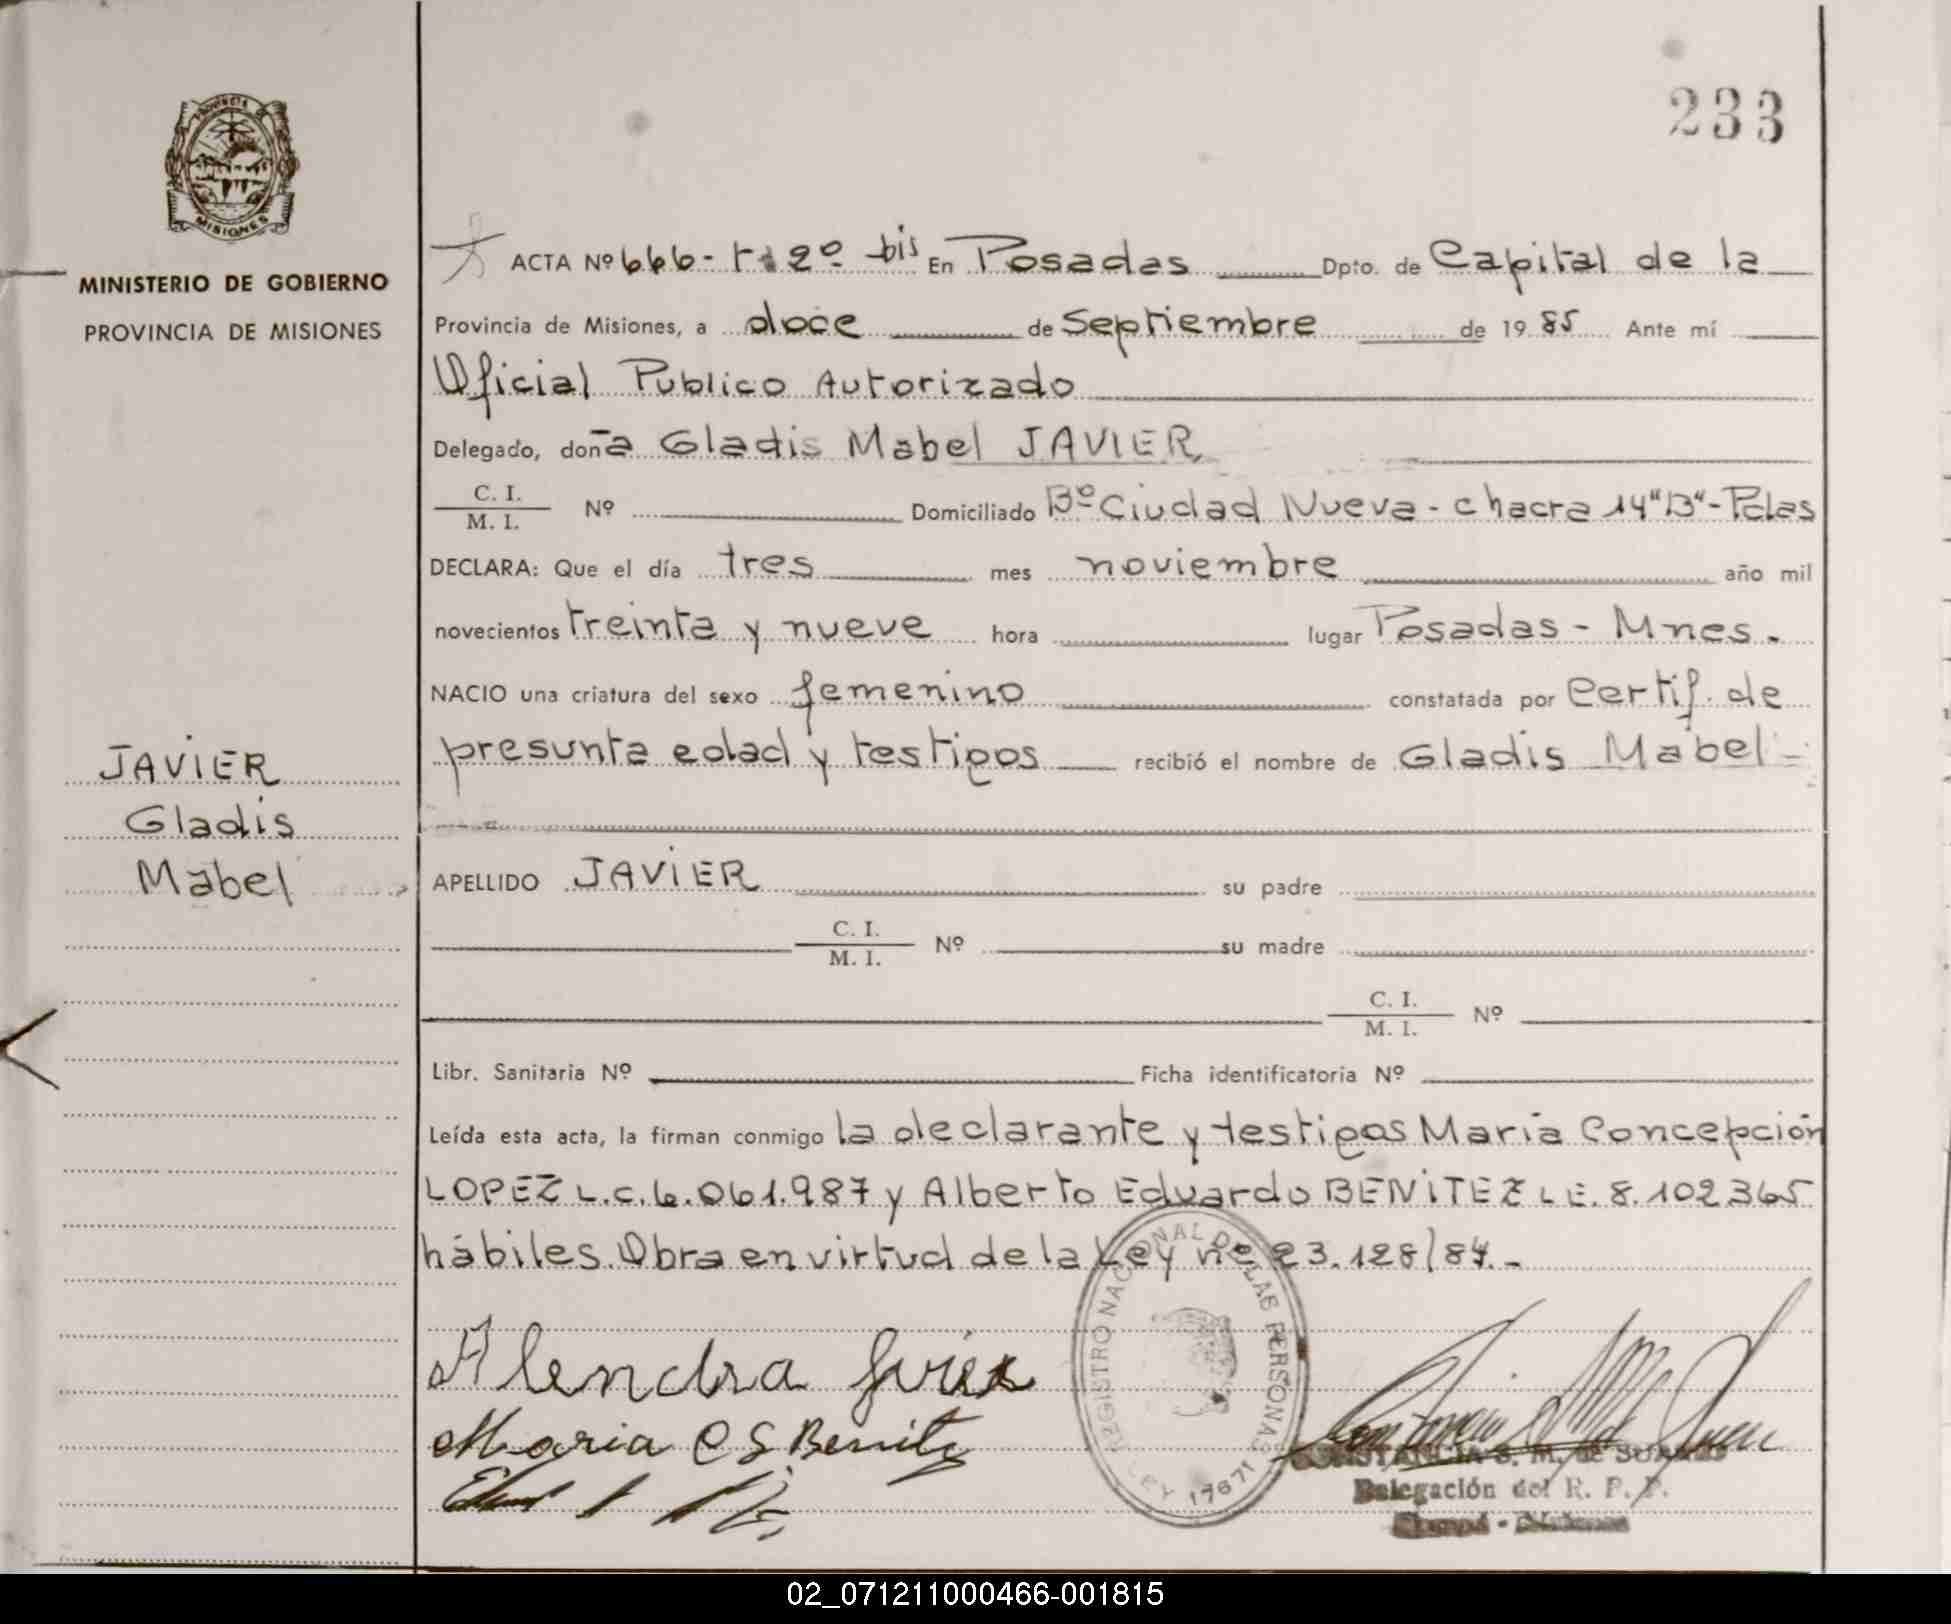 233
PROVINCIA DE
MISIONES
MINISTERIO DE GOBIERNO
PROVINCIA DE MISIONES
JAVIER
Gladis
Mabel
ACTA Nº 666- t 2º bis En Posadas Dpto. de Capital de la
Provincia de Misiones, a doce de Septiembre de 1985 Ante mí
Oficial Publico Autorizado
Delegado, doña Gladis Mabel JAVIER
C. I.
M. I. Nº Domiciliado Bº Ciudad Nueva - chacra 14"B"- Pdas
DECLARA: Que el día tres mes noviembre año mil
novecientos treinta y nueve hora lugar Posadas - Mnes.
NACIO una criatura del sexo femenino constatada por Certif. de
presunta edad y testigos recibió el nombre de Gladis Mabel -
APELLIDO JAVIER su padre
C. I.
M. I. Nº su madre
C. I.
M. I. Nº
Libr. Sanitaria Nº Ficha identificatoria Nº
Leída esta acta, la firman conmigo la declarante y testigos Maria Concepción
LOPEZ L.C. 6.061.987 y Alberto Eduardo BENITEZ L E. 8.102365
hábiles. Obra en virtud de la Ley nº 23.128/84.-
REGISTRO NACIONAL DE LAS PERSONAS
LEY 17671
Maria C S. Benitez
CONSTANCIA S. M. de SUAREZ
Delegación del R. P. P.
02_071211000466-001815